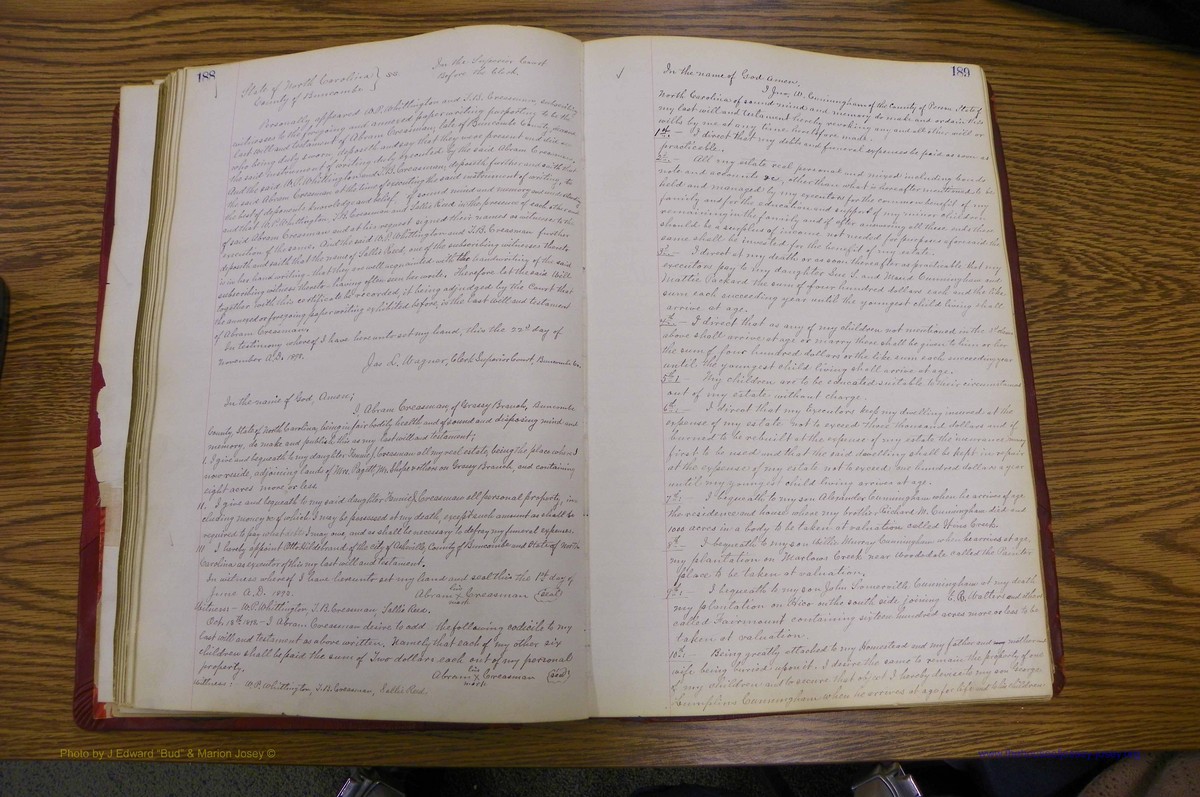 188
State of North Carolina } ss.
County of Buncombe }
In the Superior Court
Before the Clerk
Personally appeared W.P. Whittington and T.B. Cressman, subscribing
witnesses to the foregoing and annexed paper writing purporting to be the
last will and testament of Abram Cressman, late of Buncombe County,
who being duly sworn, depose and say that they were present and
the said instrument of writing duly executed by the said Abram Cressman,
And the said W.P. Whittington and T.B. Cressman, depose further and saith that
the said Abram Cressman at the time of executing the said instrument of writing, to
the best of deponents knowledge and belief, of sound mind and memory and
and that W.P. Whittington, T.B. Cressman and Sallie Reed in the presence of each other and
of said Abram Cressman and at his request signed their names as witnesses to the
execution of the same. And the said W.P. Whittington and T.B. Cressman further
depose and saith that the name of Sallie Reed, one of the subscribing witnesses thereto
is in her hand writing, that they are well acquainted with the handwriting of the said
subscribing witness thereto, having often seen her write. Therefore let the said Will
together with this certificate be recorded, it being adjudged by the Court that
the annexed or foregoing paper writing exhibited before, is the last will and testament
of Abram Cressman.
In testimony whereof I have hereunto set my hand, this the 22nd day of
November A.D. 1898.
Jas. L. Wagner, Clerk Superior Court, Buncombe Co.
In the name of God, Amen;
I Abram Cressman, of Grassy Branch, Buncombe
County, State of North Carolina, being in fair bodily health and of sound and disposing mind and
memory, do make and publish this as my last will and testament;
I. I give and bequeath to my daughter Fannie J. Cressman all my real estate, being the place where I
now reside, adjoining lands of Mrs. Pagett, Mr. Shope others on Grassy Branch, and containing
eight acres more or less
II. I give and bequeath to my said daughter Fannie J. Cressman all personal property, in-
cluding money &c of which I may be possessed at my death, except such amount as shall be
required to pay what debts I may owe, and as shall be necessary to defray my funeral expenses.
III. I hereby appoint Otto Hildebrand of the city of Asheville, County of Buncombe and State of North
Carolina as executor of this my last will and testament.
In witness whereof I have hereunto set my hand and seal this the 1st day of
June A.D. 1898.
Abram his x mark Cressman (seal)
Witness - W.P. Whittington, T.B. Cressman, Sallie Reed.
Oct. 18th 1898 - I Abram Cressman desire to add the following codicile to my
last will and testament as above written. Namely that each of my other six
children shall be paid the sum of Two dollars each out of my personal
property.
Abram his x mark Cressman (seal)
Witness; W.P. Whittington, T.B. Cressman, Sallie Reed.
189
In the name of God Amen.
I Jno. W. Cunningham of the County of Person State of
North Carolina of sound mind and memory do make and ordain this
my last will and testament hereby revoking any and all other will or
wills by me at any time heretofore made.
1st. — I direct that my debts and funeral expenses be paid as soon as
practicable.
2d. — All my estate real personal and mixed including bonds
note and accounts &c. other than what is hereafter mentioned to be
held and managed by my executors for the common benefit of my
family and for the education and support of my minor children
remaining in the family and if after answering all these ends there
should be a surplus of income not needed for purposes aforesaid the
same shall be invested for the benefit of my estate.
3d. — I direct at my death or as soon thereafter as practicable that my
executors pay to my daughter Sue S. and Maud Cunningham and
Mattie Packard the sum of four hundred dollars each and the like
sum each succeeding year until the youngest child living shall
arrive at age.
4th. — I direct that as any of my children not mentioned in the clause
above shall arrive at age or marry there shall be given to him or her
the sum of four hundred dollars or the like sum each succeeding year
until the youngest child living shall arrive at age.
5th. — My children are to be educated suitable to their circumstances
out of my estate without charge.
6th. — I direct that my Executors keep my dwelling insured at the
expense of my estate not to exceed Three thousand dollars and if
burned to be rebuilt at the expense of my estate the insurance money
first to be used and that the said dwelling shall be kept in repair
at the expense of my estate not to exceed one hundred dollars a year
until my youngest child living arrives at age.
7th. — I bequeath to my son Alexander Cunningham when he arrives of age
the residence and house where my brother Richard M. Cunningham died and
1000 acres in a body to be taken at valuation called Hico Creek.
8th. — I bequeath to my son Willie Murray Cunningham when he arrives at age,
my plantation on Marlows Creek near Woodsdale called the Painter
place to be taken at valuation.
9th. — I bequeath to my son John Somerville Cunningham at my death
my plantation on Hico on the south side joining G.B. Walters and others
called Fairmount containing sixteen hundred acres more or less to be
taken at valuation.
10th. — Being greatly attached to my Homestead and my father and my mother and
wife being buried upon it. I desire the same to remain the property of one
of my children and to secure that object I hereby devise to my son George
Cunningham when he arrives at age for life and to his children
Photo by J Edward "Bud" & Marion Josey ©